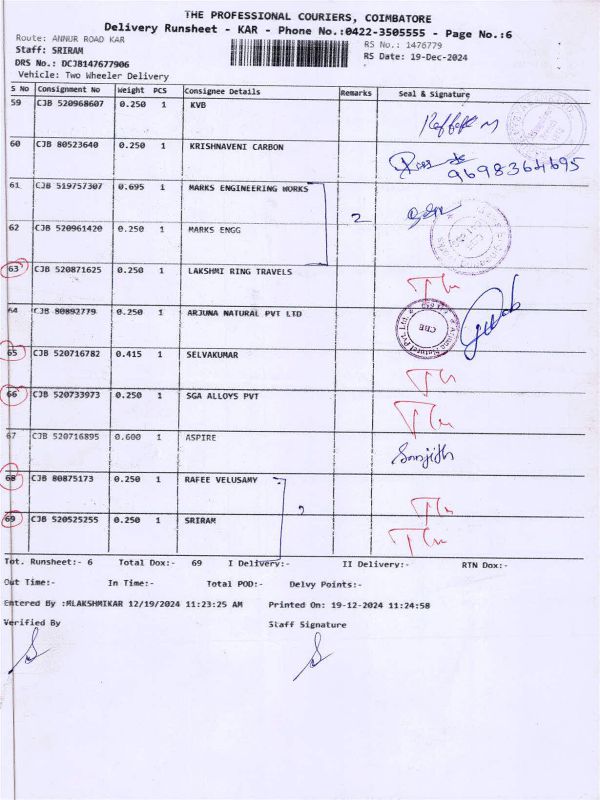 THE PROFESSIONAL COURIERS, COIMBATORE
Delivery Runsheet - KAR - Phone No.:0422-3505555 - Page No.:6
Route: ANNUR ROAD KAR
RS No.: 1476779
Staff: SRIRAM
RS Date: 19-Dec-2024
DRS No.: DCJB147677906
Vehicle: Two Wheeler Delivery
S No Consignment No Weight PCS Consignee Details Remarks Seal & Signature
59 CJB 520968607 0.250 1 KVB
60 CJB 80523640 0.250 1 KRISHNAVENI CARBON
9698364695
61 CJB 519757307 0.695 1 MARKS ENGINEERING WORKS
2
62 CJB 520961420 0.250 1 MARKS ENGG
63 CJB 520871625 0.250 1 LAKSHMI RING TRAVELS
64 CJB 80892779 0.250 1 ARJUNA NATURAL PVT LTD
CBE
65 CJB 520716782 0.415 1 SELVAKUMAR
66 CJB 520733973 0.250 1 SGA ALLOYS PVT
67 CJB 520716895 0.600 1 ASPIRE
68 CJB 80875173 0.250 1 RAFEE VELUSAMY
69 CJB 520525255 0.250 1 SRIRAM
Tot. Runsheet:- 6 Total Dox:- 69 I Delivery:- II Delivery:- RTN Dox:-
Out Time:- In Time:- Total POD:- Delvy Points:-
Entered By :MLAKSHMIKAR 12/19/2024 11:23:25 AM Printed On: 19-12-2024 11:24:58
Verified By Staff Signature